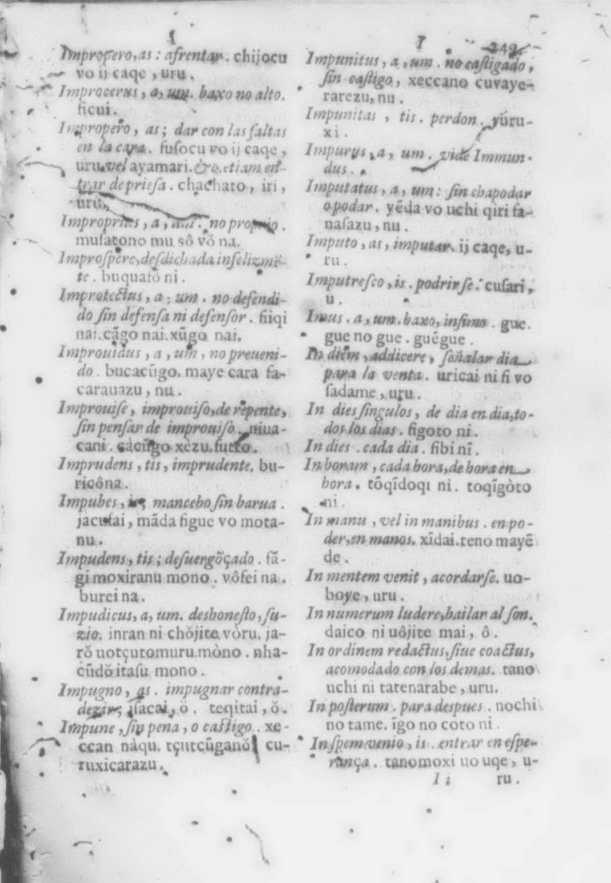 I
I 249
Impropero, as: afrentar. chijocu
vo ij caqe, uru.
Improcerus, a, um. baxo no alto.
ficui.
Impropero, as; dar con las faltas
en la cara. fusocu vo ij caqe,
uru, vel ayamari. &c. etiam en-
trar de priesa. chachato, iri,
uru.
Improprius, a, um. no proprio.
musatono mu sŏ vŏ na.
Improspere, desdichada infelizmẽ-
te. buquafŏ ni.
Improtectus, a; um. no defendi-
do sin defensa ni defensor. fiiqi
nai. cãgo nai. xũgo nai.
Improuidus, a, um, no preueni-
do. bucacũgo. maye cara fa-
carauazu, nu.
Improuise, improuiso, de repente,
sin pensar de improuiso. niua-
cani. cacũgo xezu. futto.
Imprudens, tis, imprudente. bu-
ricŏna.
Impubes, is; mancebo sin barua.
jacufai, mãda figue vo mota-
nu.
Impudens, tis; desuergŏçado. fã-
gi moxiranu mono. vŏfei na.
burei na.
Impudicus, a, um. deshonesto, su-
zio. inran ni chŏjite voru. ja-
rŏ uotçutomuru mono. nha-
cũdŏ itasu mono.
Impugno, as. impugnar contra-
dezir; isacai, ŏ. teqitai, ŏ.
Impune, sin pena, o castigo. xe-
ccan naqu. tçutcũganŏ cu-
ruxicarazu.
Impunitus, a, um. no castigado,
sin castigo, xeccano cuvaye-
rarezu, nu.
Impunitas, tis. perdon. yuru-
xi.
Impurus, a, um. vide Immun-
dus.
Imputatus, a, um: sin chapodar
o podar. yẽda vo uchi qiri fa-
nasazu, nu.
Imputo, as, imputar. ij caqe, u-
ru.
Imputresco, is. podrirse. cusari,
u.
Imus. a, um. baxo, infimo. gue.
gue no gue. guẽgue.
In diem, addicere, señalar dia
para la venta. uricai ni fi vo
sadame, uru.
In dies singulos, de dia en dia, to-
dos los dias. figoto ni.
In dies. cada dia. fibi nĩ.
In horam, cada hora, de hora en
hora. tŏqĩdoqi ni. toqĩgŏto
ni.
In manu, vel in manibus. en po-
der, en manos. xĩdai. teno mayẽ
de.
In mentem venit, acordarse. uo-
boye, uru.
In numerum ludere, bailar al son.
daico ni uŏjite mai, ŏ.
In ordinem redactus, siue coactus,
acomodado con los demas. tano
uchi ni tatenarabe, uru.
In posterum. para despues. nochi
no tame. ĩgo no coto ni.
In spem venio, is. entrar en espe-
rança. tanomoxi uo uqe, u-
I i ru.